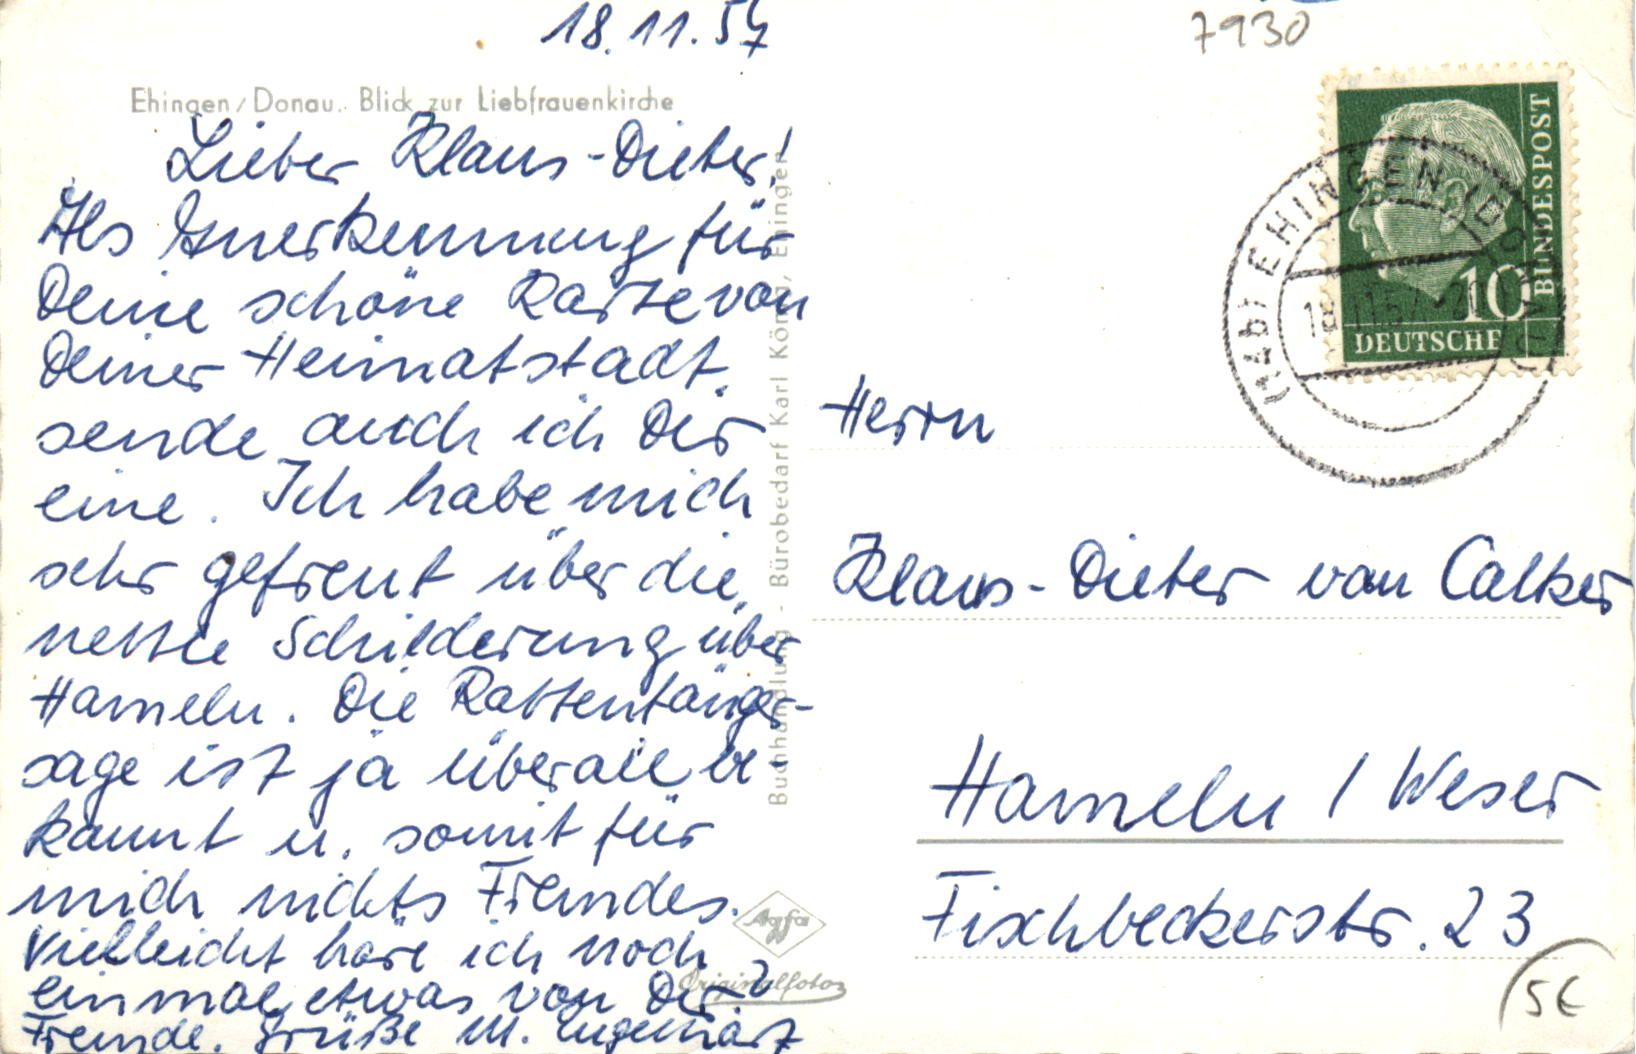 18.11.57
7930
Ehingen/Donau. Blick zur Liebfrauenkirche
Lieber Klaus-Dieter!
Als Anerkennung für
Deine schöne Karte von
Deiner Heimatstadt,
sende auch ich Dir
eine. Ich habe mich
sehr gefreut über die
nette Schilderung über
Hameln. Die Rattenfänger-
sage ist ja überall be-
kannt u. somit für
mich nichts Fremdes.
Vielleicht höre ich noch
einmal etwas von Dir?
Freunde. Grüße M.
Buchhandlung - Bürobedarf Karl König, Ehingen
Agfa
Originalfoto
BUNDESPOST
10
DEUTSCHE
(14b) EHINGEN (DONAU)
18.11.57.-20
Herrn
Klaus-Dieter van Calker
Hameln / Weser
Fischbeckerstr. 23
5€